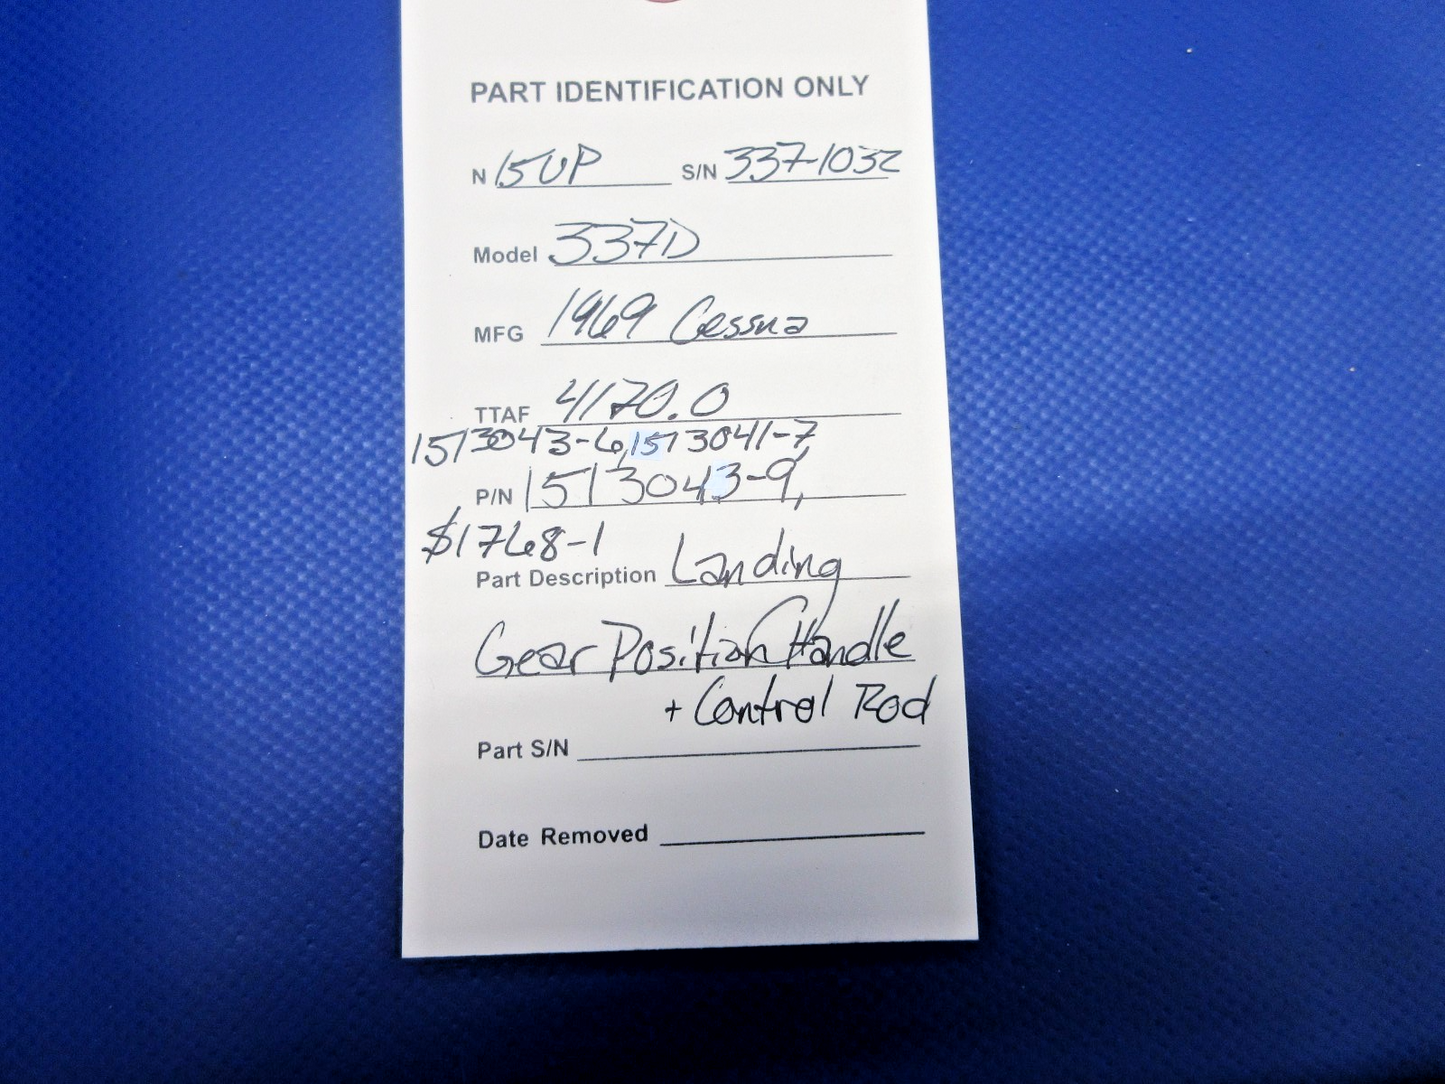 PART IDENTIFICATION ONLY
N 15UP S/N 337-1032
Model 337D
MFG 1969 Cessna
TTAF 4170.0
1513043-6, 1513041-7
P/N 1513043-9,
$1768-1
Part Description Landing
Gear Position Handle
+ Control Rod
Part S/N
Date Removed